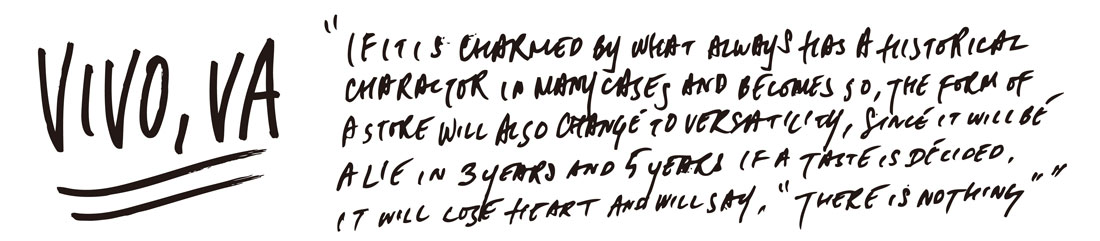 VIVO, VA
"IF IT IS CHARMED BY WHAT ALWAYS HAS A HISTORICAL
CHARACTOR IN MANY CASES AND BECOMES SO, THE FORM OF
A STORE WILL ALSO CHANGE TO VERSATILITY, SINCE IT WILL BE
A LIE IN 3 YEARS AND 5 YEARS IF A TASTE IS DECIDED.
IT WILL LOSE HEART AND WILL SAY, "THERE IS NOTHING" "